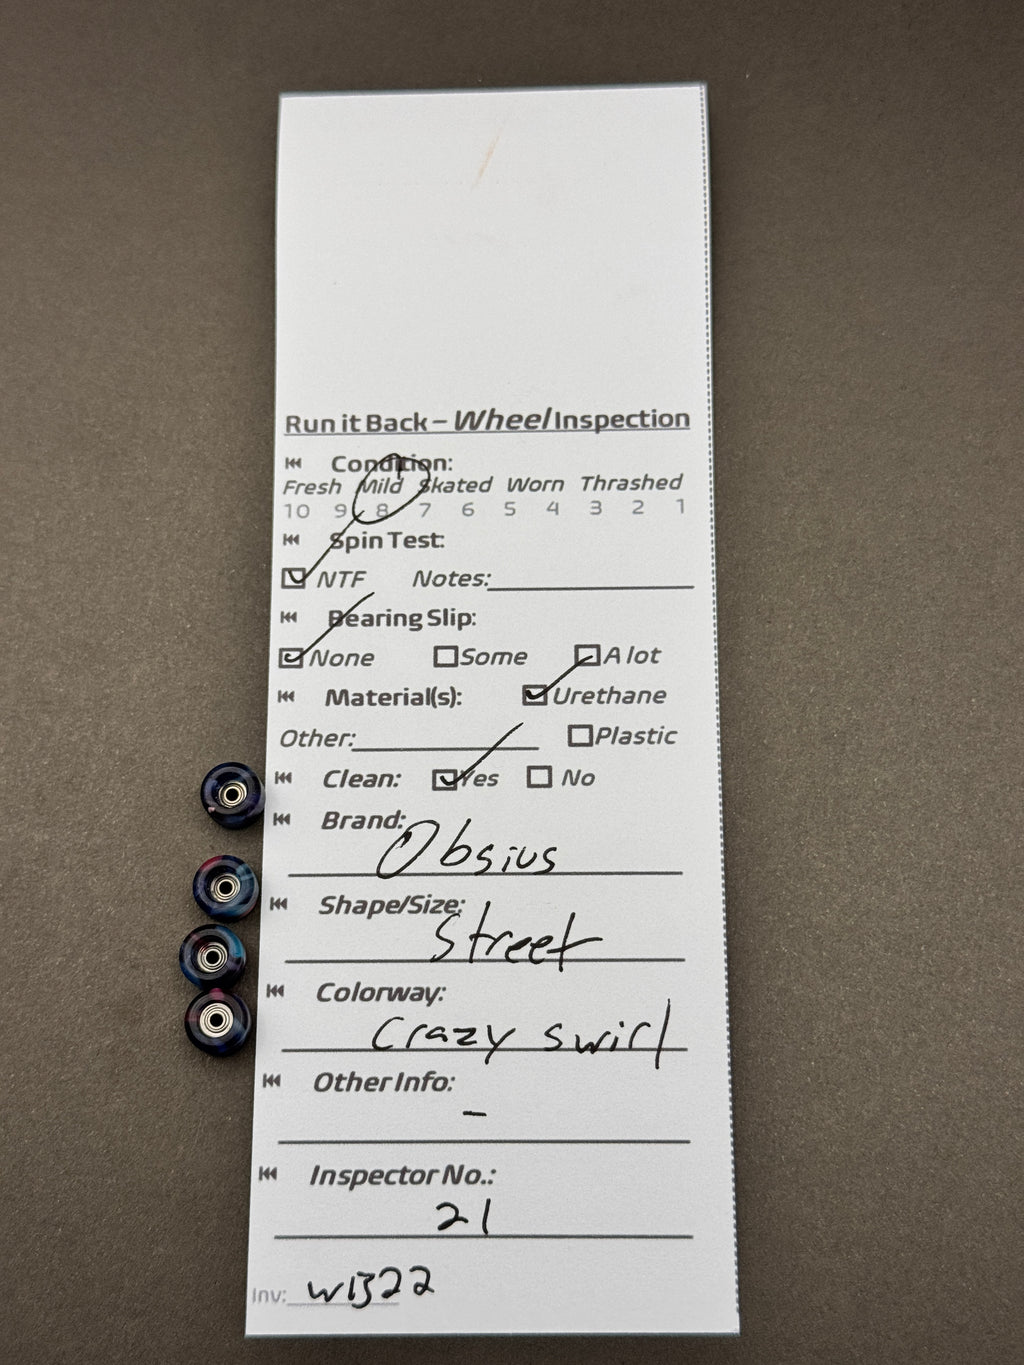 Run it Back – Wheel Inspection
Condition:
Fresh Mild Skated Worn Thrashed
10 9 8 7 6 5 4 3 2 1
Spin Test:
NTF Notes:
Bearing Slip:
None Some A lot
Material(s): Urethane
Other: Plastic
Clean: Yes No
Brand:
Obsius
Shape/Size:
Street
Colorway:
Crazy swirl
Other Info:
–
Inspector No.:
21
Inv: W1322